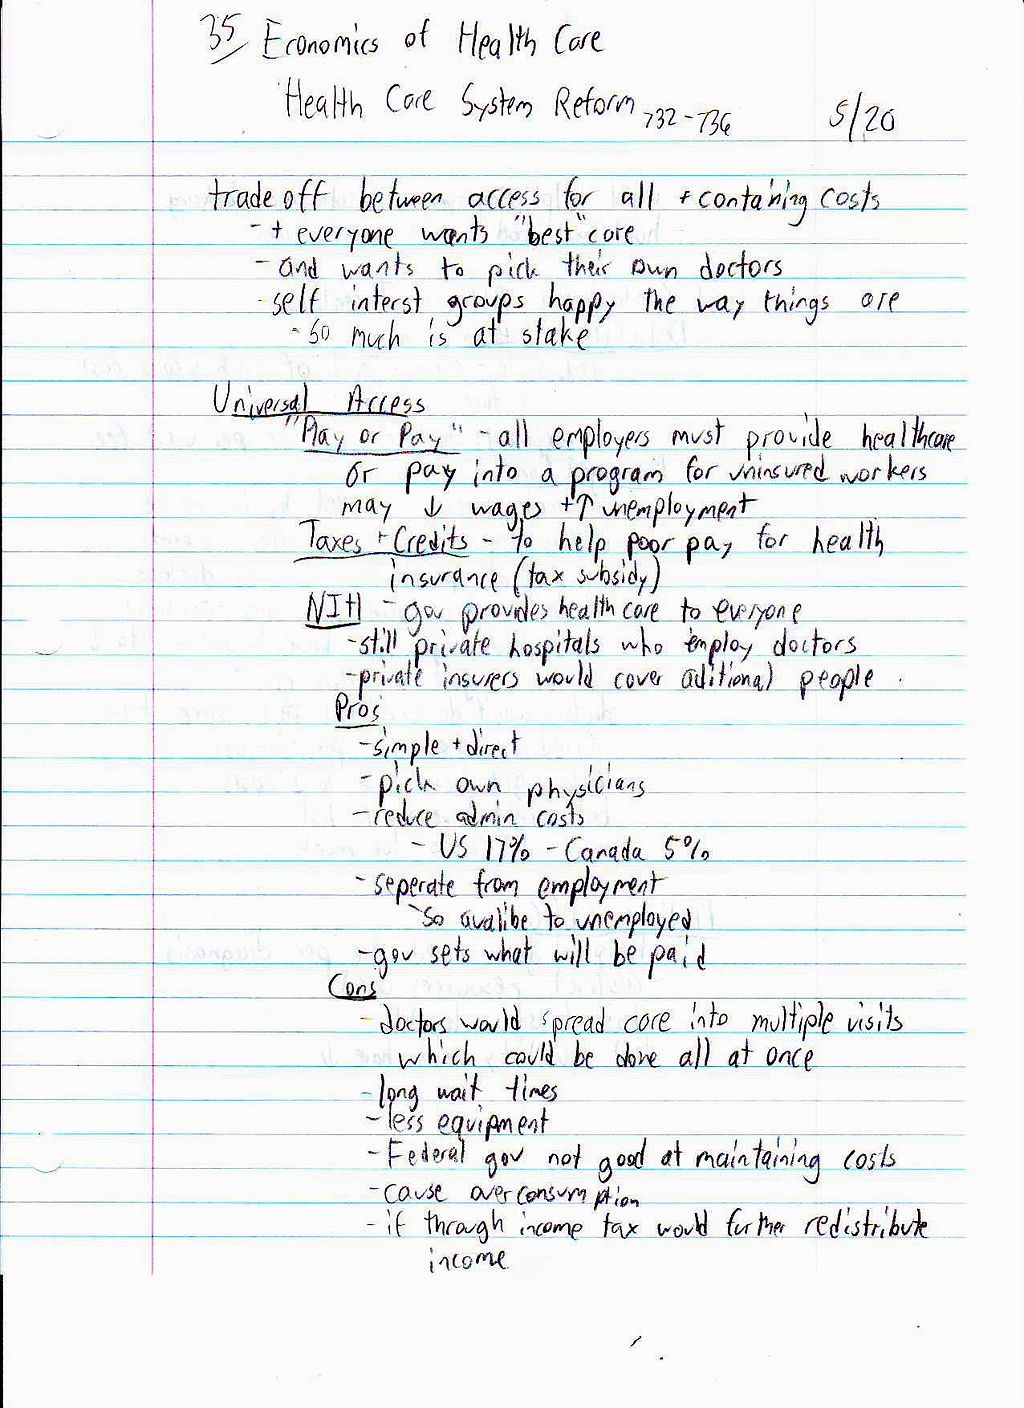 35 Economics of Health Care
Health Care System Reform 732-736 5/20
trade off between access for all + containing costs
- + everyone wants "best" care
- and wants to pick their own doctors
- self interst groups happy the way things are
- so much is at stake
Universal Access
"Play or Pay" - all employers must provide healthcare
or pay into a program for uninsured workers
may ↓ wages + ↑ unemployment
Taxes + Credits - to help poor pay for health
insurance (tax subsidy)
NIH - gov provides health care to everyone
- still private hospitals who employ doctors
- private insurers would cover aditional people
Pros
- simple + direct
- pick own physicians
- reduce admin costs
- US 17% - Canada 5%
- seperate from employment
- so avalibe to unemployed
- gov sets what will be paid
Cons
- doctors would spread care into multiple visits
which could be done all at once
- long wait times
- less equipment
- Federal gov not good at maintaining costs
- cause overconsumption
- if through income tax would further redistribute
income